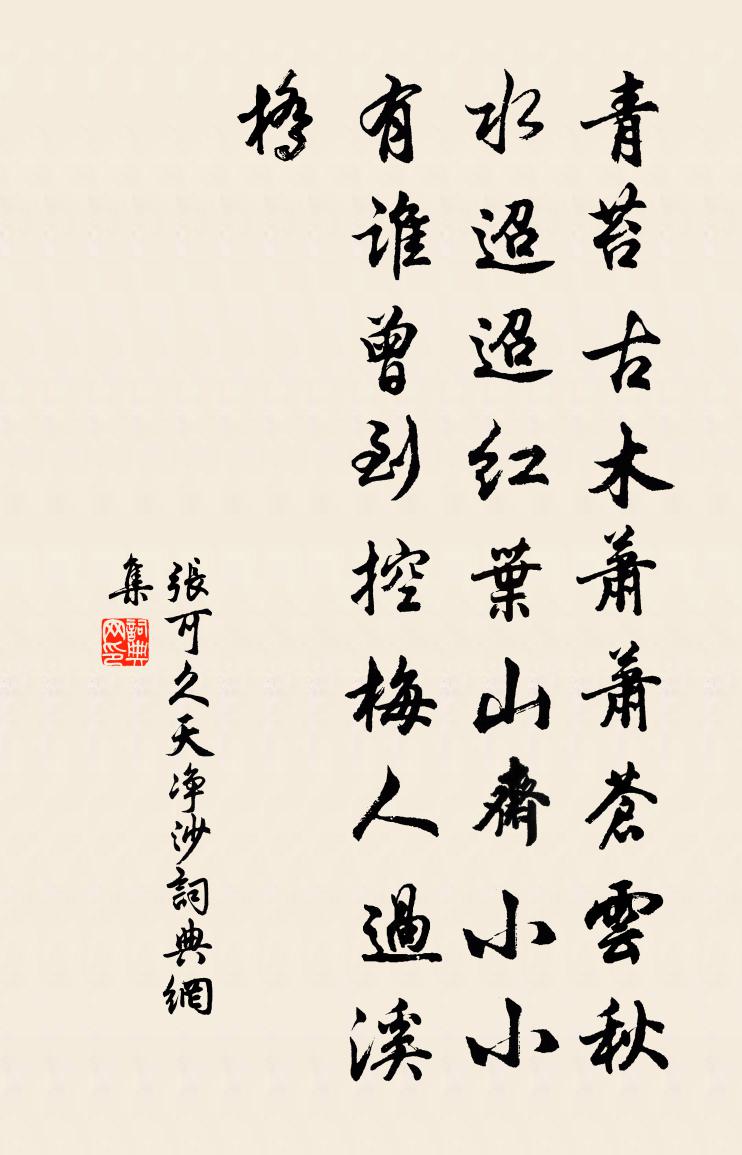 青苔古木蕭蕭蒼雲秋
水迢迢紅葉山齋小小
有誰曾到控梅人過溪
橋
張可久天净沙詞典網
集
詞典
网印